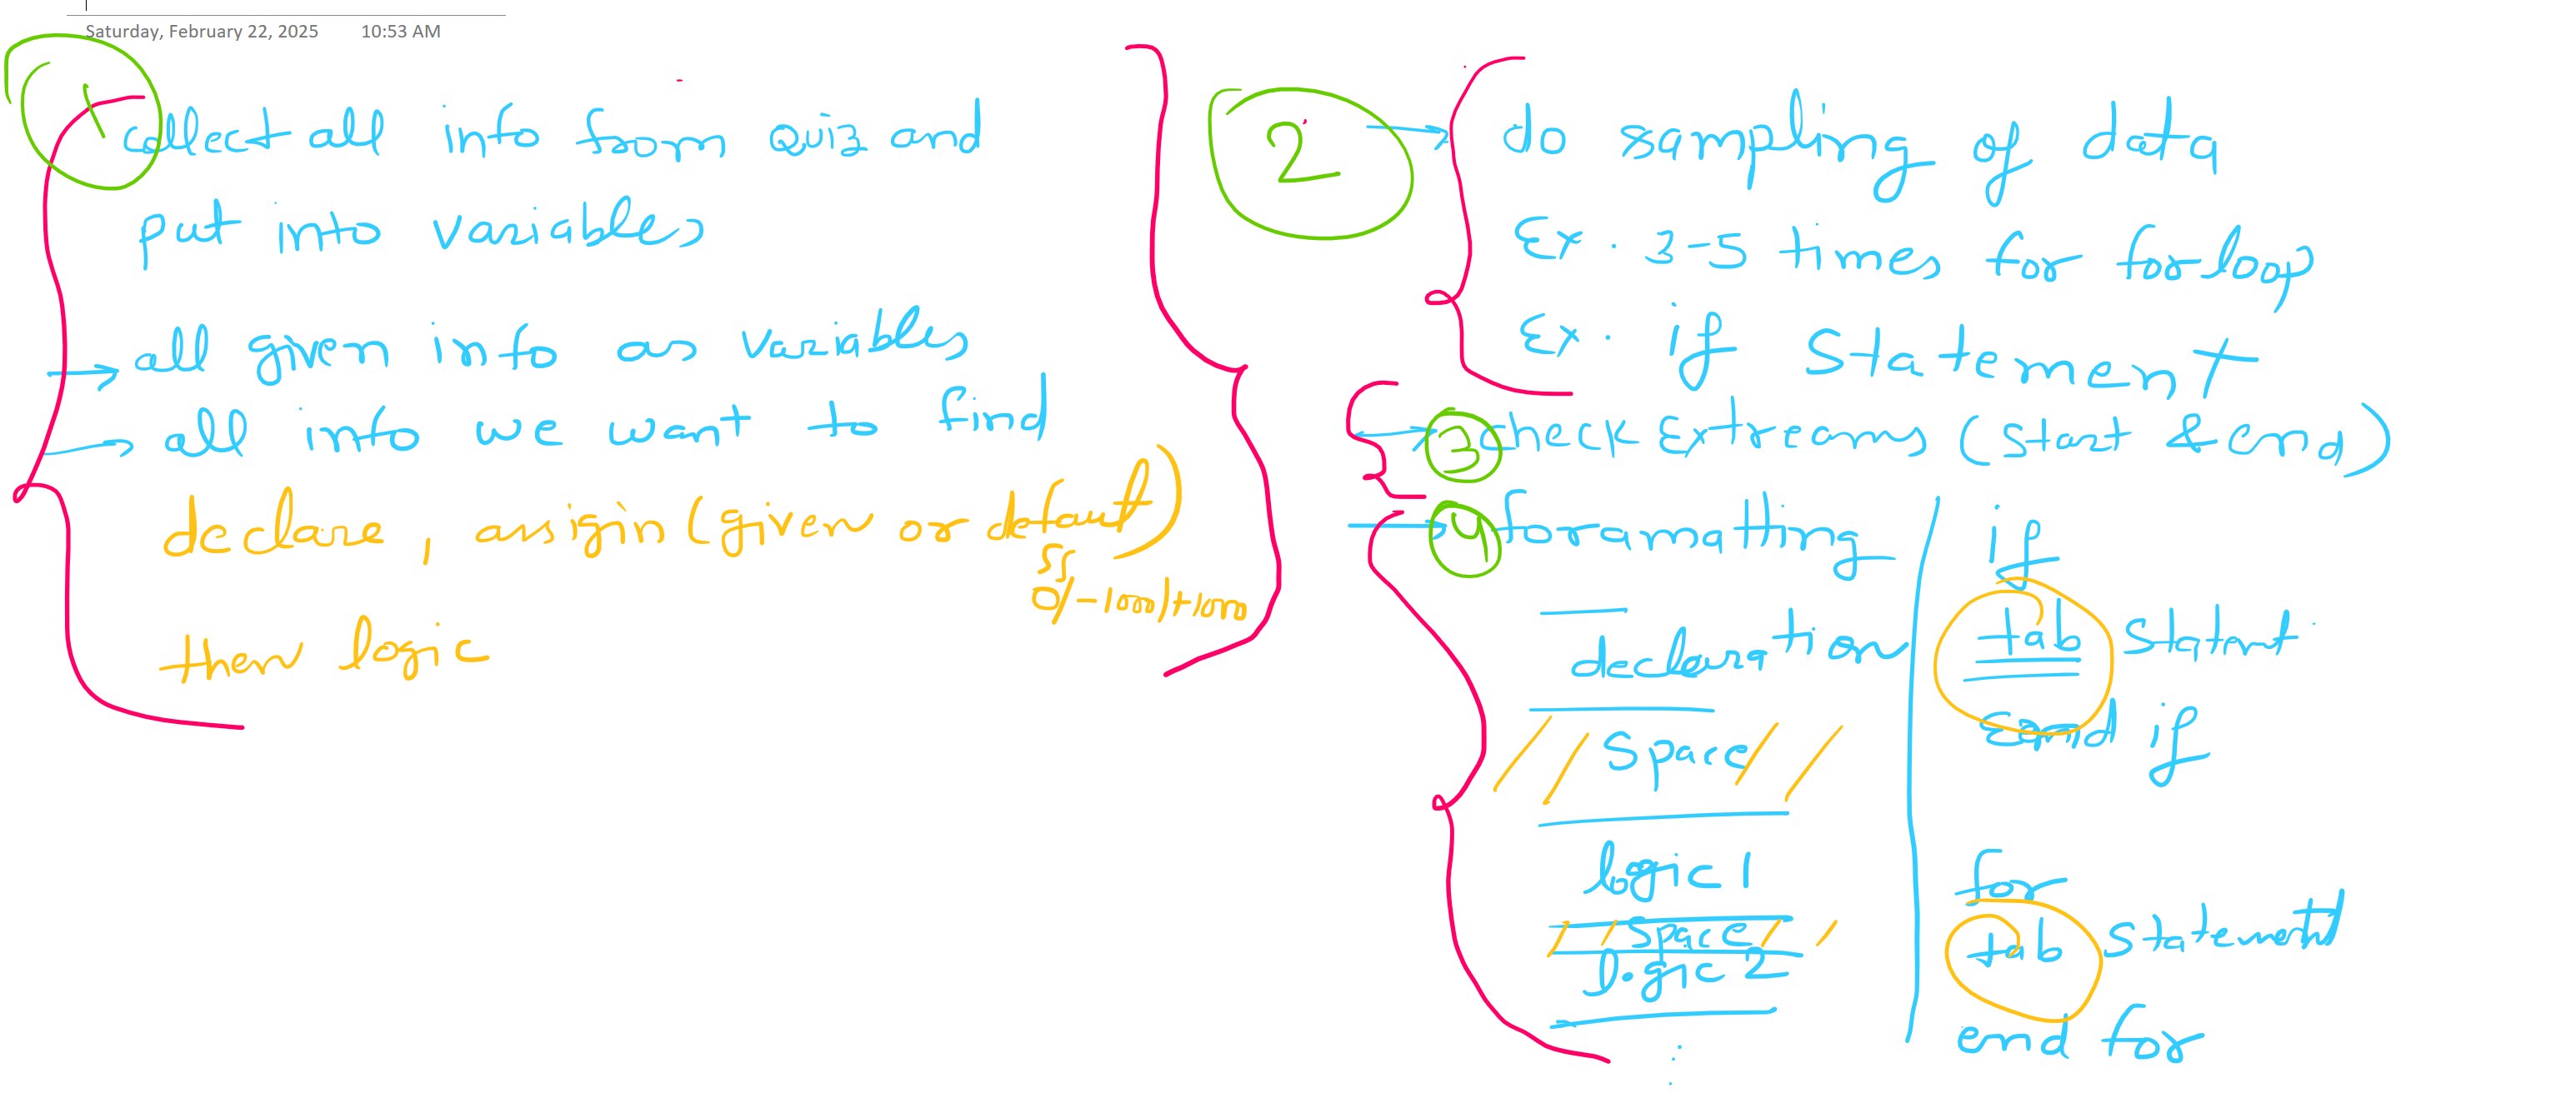 Saturday, February 22, 2025 10:53 AM
1
collect all info from Quiz and
put into variables
→ all given info as variables
→ all info we want to find
declare, assigin (given or default)
0/-1000/+1000
then logic
2 → do sampling of data
Ex. 3-5 times for for loop
Ex. if Statement
→ 3 check Extreams (start & end)
→ 4 foramatting
declaration
space
logic 1
space
logic 2
if
tab statmt
end if
for
tab statement
end for